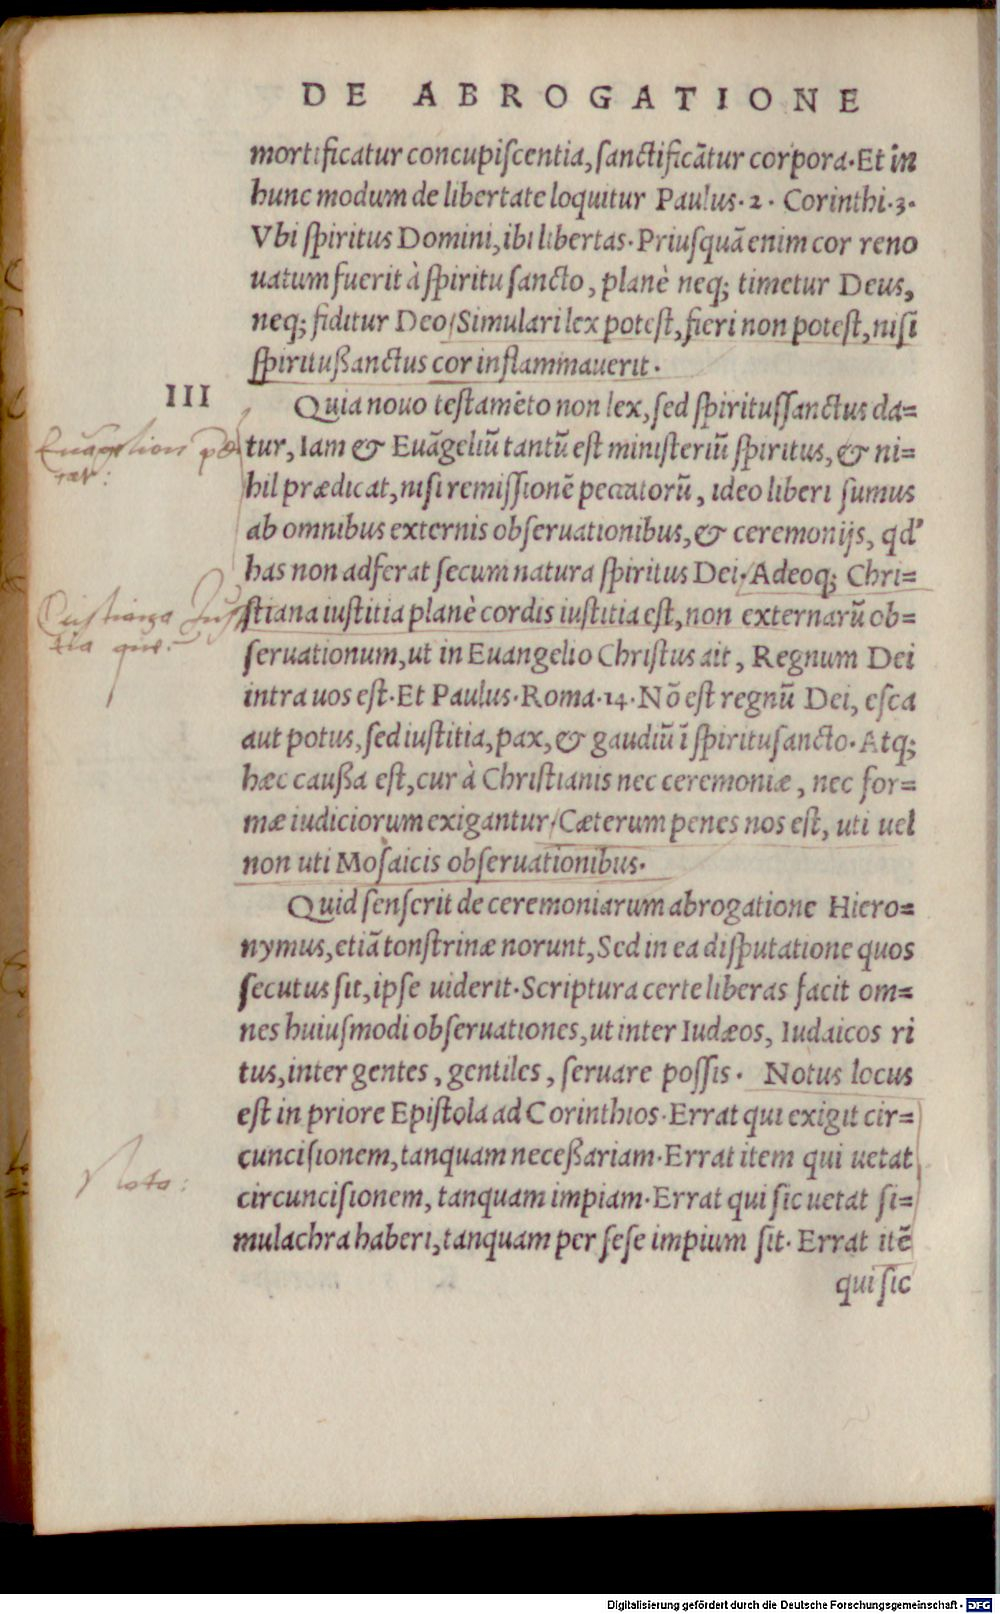 DE ABROGATIONE
mortificatur concupiſcentia, ſanctificãtur corpora. Et in
hunc modum de libertate loquitur Paulus. 2. Corinthi. 3.
Vbi ſpiritus Domini, ibi libertas. Priuſquã enim cor reno
uatum fuerit à ſpiritu ſancto, planè neq; timetur Deus,
neq; fiditur Deo/Simulari lex poteſt, fieri non poteſt, niſi
ſpiritußanctus cor inflammauerit.
III
Quia nouo teſtamẽto non lex, ſed ſpirituſſanctus da=
tur, Iam & Euãgeliũ tantũ eſt miniſteriũ ſpiritus, & ni=
hil prædicat, niſi remiſſionẽ peccatorũ, ideo liberi ſumus
ab omnibus externis obſeruationibus, & ceremonijs, qd’
has non adferat ſecum natura ſpiritus Dei. Adeoq; Chri=
ſtiana iuſtitia planè cordis iuſtitia eſt, non externarũ ob=
ſeruationum, ut in Euangelio Chriſtus ait, Regnum Dei
intra uos eſt. Et Paulus. Roma. 14. Nõ eſt regnũ Dei, eſca
aut potus, ſed iuſtitia, pax, & gaudiũ ĩ ſpiritu ſancto. Atq;
hæc caußa eſt, cur à Chriſtianis nec ceremoniæ, nec for=
mæ iudiciorum exigantur/Cæterum penes nos eſt, uti uel
non uti Moſaicis obſeruationibus.
Quid ſenſerit de ceremoniarum abrogatione Hiero=
nymus, etiã tonſtrinæ norunt, Sed in ea diſputatione quos
ſecutus ſit, ipſe uiderit. Scriptura certe liberas facit om=
nes huiuſmodi obſeruationes, ut inter Iudæos, Iudaicos ri
tus, inter gentes, gentiles, ſeruare poſſis. Notus locus
eſt in priore Epiſtola ad Corinthios. Errat qui exigit cir=
cunciſionem, tanquam neceßariam. Errat item qui uetat
circunciſionem, tanquam impiam. Errat qui ſic uetat ſi=
Nota:
mulachra haberi, tanquam per ſeſe impium ſit. Errat itẽ
qui ſic
Digitalisierung gefördert durch die Deutsche Forschungsgemeinschaft - DFG